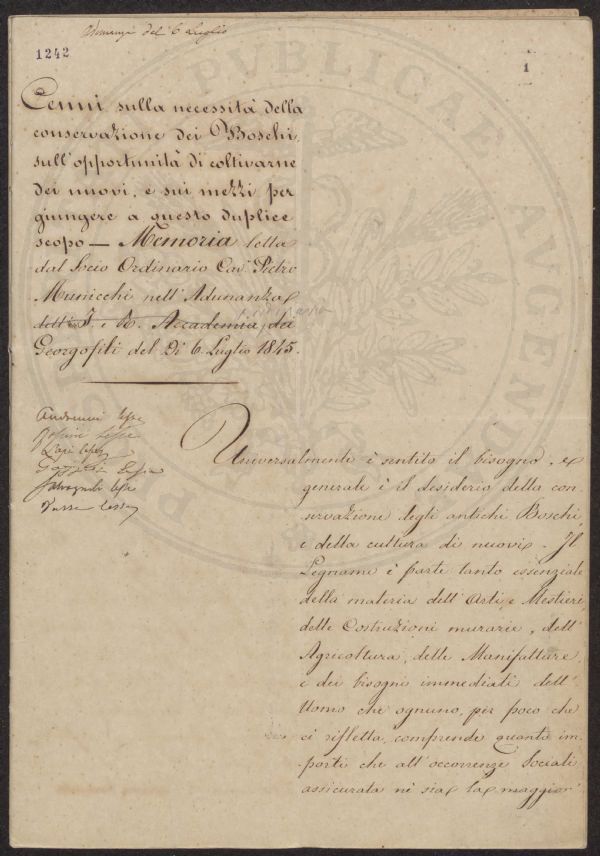 del 6 Luglio
1242
1
Cenni sulla necessità della
conservazione dei Boschi,
sull'opportunità di coltivarne
dei nuovi, e sui mezzi per
giungere a questo duplice
scopo — Memoria letta
dal Socio Ordinario Cav. Pietro
Municchi nell'Adunanza
dell'I. e R. Accademia dei
Georgofili del Dì 6. Luglio 1845.
Universalmente è sentito il bisogno, e
generale è il desiderio della con-
servazione degli antichi Boschi,
e della cultura di nuovi. Il
Legname è parte tanto essenziale
della materia dell'Arti, e Mestieri,
delle Costruzioni murarie, dell'
Agricoltura, delle Manifatture,
e dei bisogni immediati dell'
Uomo che ognuno, per poco che
ci rifletta, comprende quanto im-
porti che all'occorrenze Sociali
assicurata ne sia la maggior
PUBLICAE
AUGENDO